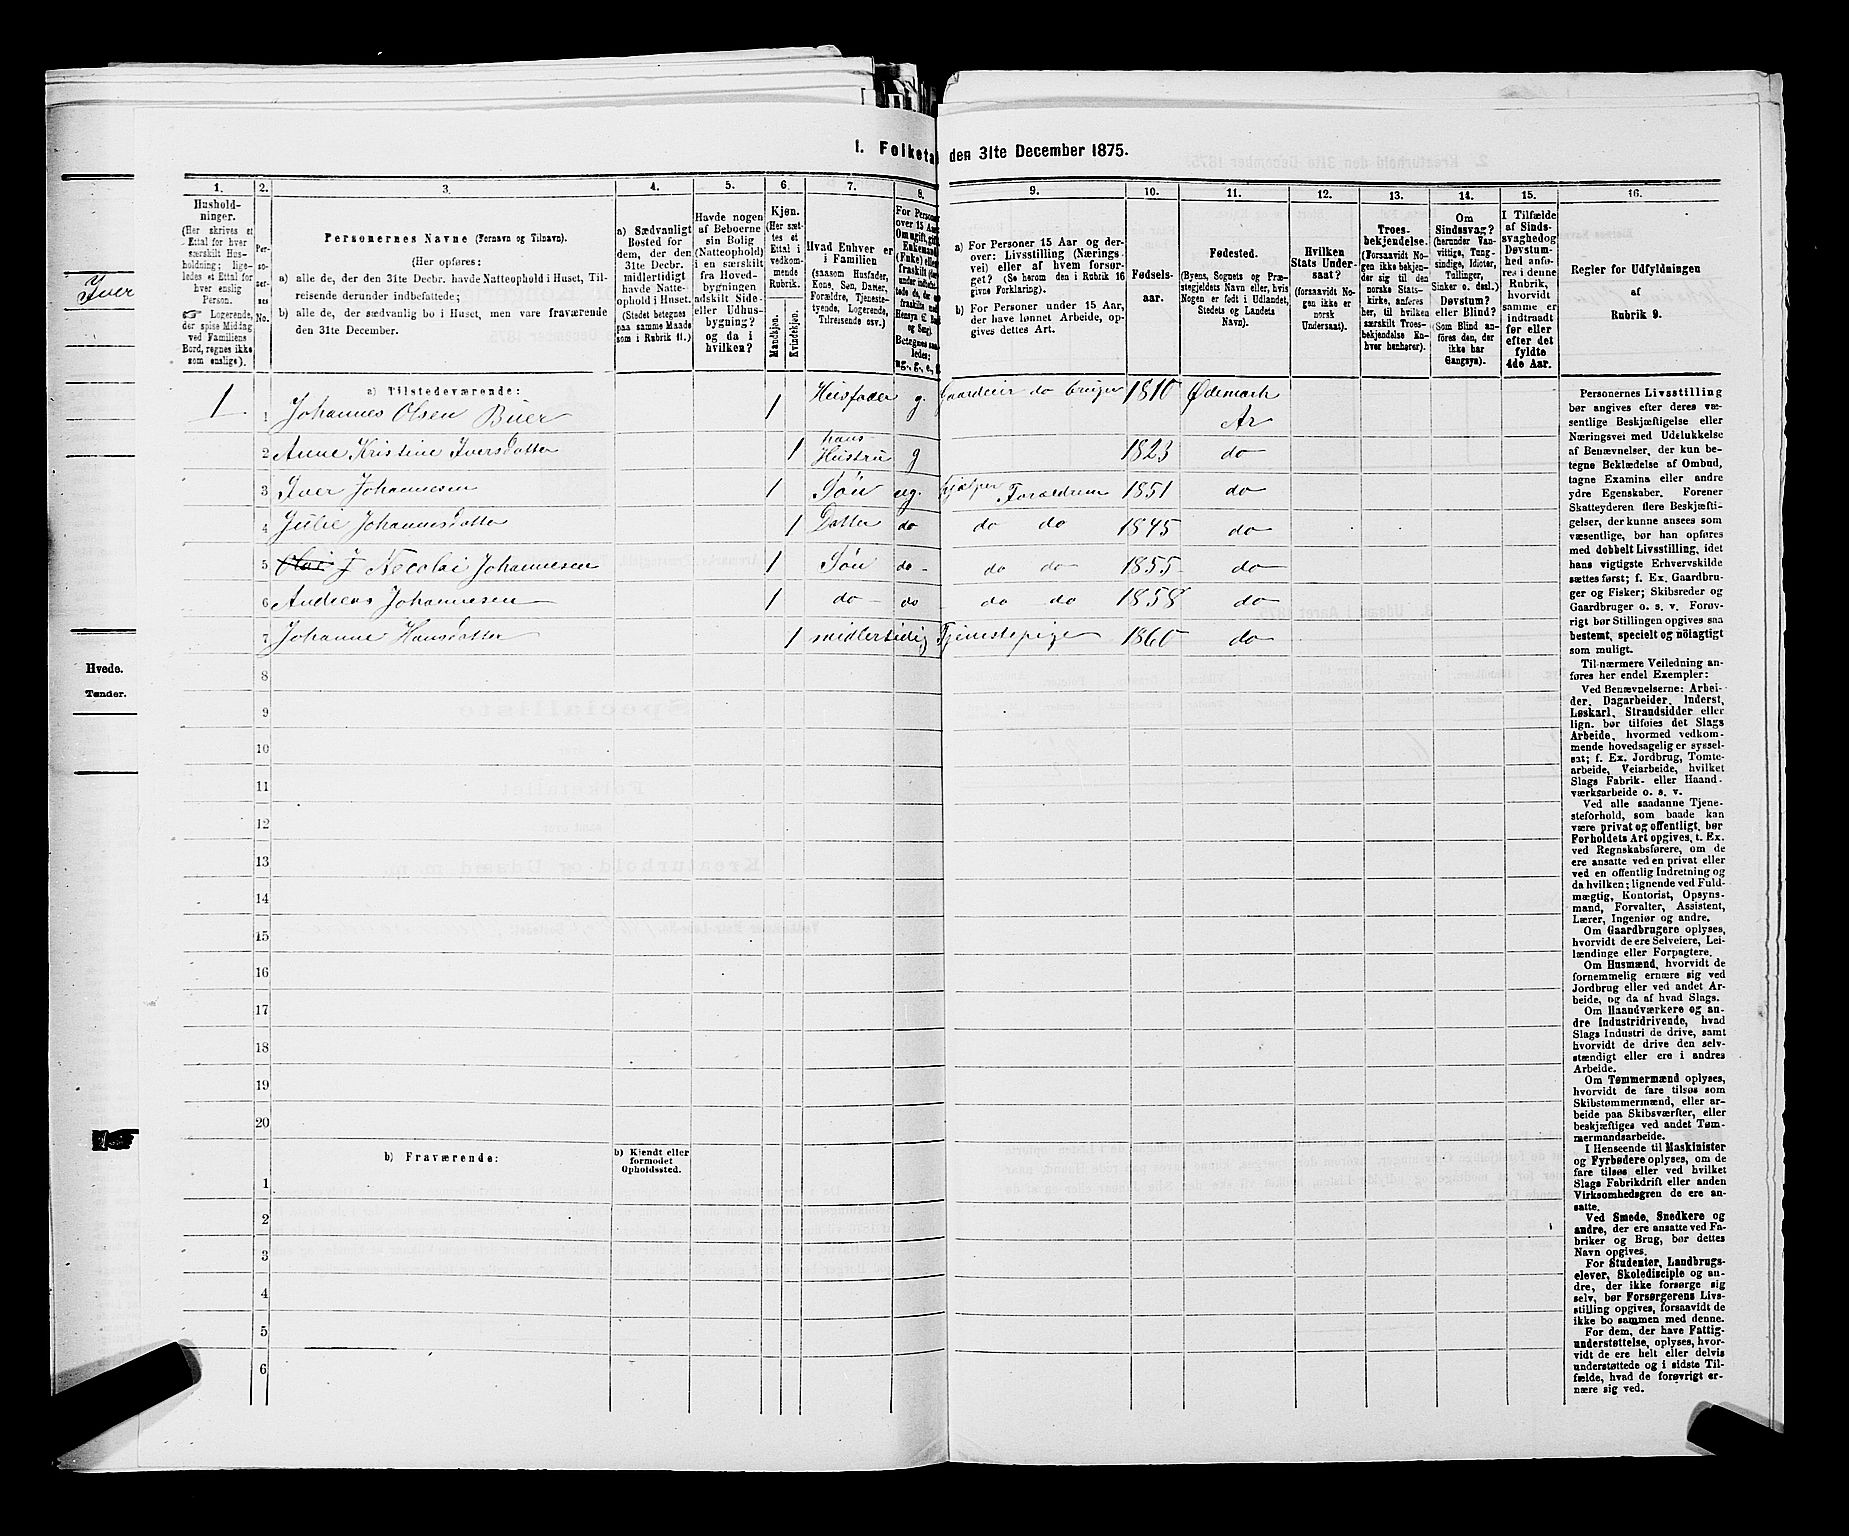 1. Folketal den 31te December 1875.
Iver
Hvede.
Tønder.
1.
Hushold-
ninger.
(Her skrives et
Ettal for hver
særskilt Hus-
holdning; lige-
ledes et Ettal for
hver enslig
Person.
☞ Logerende,
der spise Middag
ved Familiens
Bord, regnes ikke
som enslige).
2.
Per-
so-
ner-
nes
No.
3.
Personernes Navne (Fornavn og Tilnavn).
(Her opføres:
a) alle de, der den 31te Decbr. havde Natteophold i Huset, Til-
reisende derunder indbefattede;
b) alle de, der sædvanlig bo i Huset, men vare fraværende
den 31te December.
4.
a) Sædvanligt
Bosted for
dem, der den
31te Decbr.
midlertidigt
havde Natte-
ophold i Huset.
(Stedet betegnes
paa samme Maade
som i Rubrik 11.)
5.
Havde nogen
af Beboerne
sin Bolig
(Natteophold)
i en særskilt
fra Hoved-
bygningen
adskilt Side-
eller Udhus-
bygning?
og da i
hvilken?
6.
Kjøn.
(Her sæt-
tes et
Ettal i
vedkom-
mende
Rubrik.
Mandkjøn.
Kvindekjøn.
7.
Hvad Enhver er
i Familien
(saasom Husfader,
Kone, Søn, Datter,
Forældre, Tjeneste-
tyende, Logerende,
Tilreisende osv.)
8.
For Personer
over 15 Aar:
Om ugift, gift,
Enkemand
(Enke) eller
fraskilt
Betegnes saa-
ledes:
ug., g., e., f.
9.
a) For Personer 15 Aar og der-
over: Livsstilling (Nærings-
vei) eller af hvem forsør-
get? (Se herom den i Rubrik 16
givne Forklaring).
b) For Personer under 15 Aar,
der have lønnet Arbeide, op-
gives dettes Art.
10.
Fødsels-
aar.
11.
Fødested.
(Byens, Sognets og Præ-
stegjeldets Navn eller, hvis
Nogen er født i Udlandet,
Stedets og Landets
Navn).
12.
Hvilken
Stats Under-
saat?
(forsaavidt No-
gen ikke er
norsk
Undersaat).
13.
Troes-
bekjendelse.
(Forsaavidt No-
gen ikke bekjen-
der sig til den
norske Stats-
kirke, anføres
her, til hvilken
særskilt Troes-
bekjendelse En-
hver henhører).
14.
Om
Sindssvag?
(herunder Van-
vittige, Tung-
sindige, Idioter,
Tullinger,
Sinker o. desl.)
Døvstum?
eller Blind?
(Som Blind an-
føres den, der
ikke har
Gangsyn).
15.
I Tilfælde
af Sinds-
svaghed og
Døvstum-
hed anfø-
res i denne
Rubrik,
hvorvidt
samme er
indtraadt
før eller
efter det
fyldte
4de Aar.
16.
Regler for Udfyldningen
af
Rubrik 9.
a) Tilstedeværende:
1 1 Johannes Olsen Buer 1 Husfader g. Gaardeier do bruger 1810 Ødemark
Ar
2 Anne Kristine Iversdatter 1 hans Hustru g 1823 do
3 Iver Johannesen 1 Søn ug. hjælper Forældrene 1851 do
4 Julie Johannesdatter 1 Datter do do do 1845 do
5 J Necolai Johannesen 1 Søn do do do 1855 do
6 Andreas Johannesen 1 do do do do 1858 do
7 Johanne Hansdatter 1 midlertidig Tjenestepige 1860 do
8
9
10
11
12
13
14
15
16
17
18
19
20
b) Fraværende:
b) Kjendt eller
formodet
Opholdssted.
1
2
3
4
5
6
Personernes Livsstilling
bør angives efter deres væ-
sentlige Beskjæftigelse eller
Næringsvei med Udelukkelse
af Benævnelser, der kun be-
tegne Beklædelse af Ombud,
tagne Examina eller andre
ydre Egenskaber. Forener
Skatteyderen flere Beskjæfti-
gelser, der kunne ansees som
væsentlige, bør han opføres
med dobbelt Livsstilling, idet
hans vigtigste Erhvervskilde
sættes først; f. Ex. Gaardbru-
ger og Fisker; Skibsreder og
Gaardbruger o. s. v. Forøv-
rigt bør Stillingen opgives saa
bestemt, specielt og nöiagtigt
som muligt.
Til nærmere Veiledning an-
føres her endel Exempler:
Ved Benævnelserne: Arbei-
der, Dagarbeider, Inderst,
Løskarl, Strandsidder eller
lign. bør tilføies det Slags
Arbeide, hvormed vedkom-
mende hovedsagelig er syssel-
sat; f. Ex. Jordbrug, Tomte-
arbeide, Veiarbeide, hvilket
Slags Fabrik- eller Haand-
værksarbeide o. s. v.
Ved alle saadanne Tjene-
steforhold, som baade kan
være privat og offentligt, bør
Forholdets Art opgives, t. Ex.
ved Regnskabsførere, om de
ere ansatte ved en privat eller
ved en offentlig Indretning og
da hvilken; lignende ved Fuld-
mægtig, Kontorist, Opsyns-
mand, Forvalter, Assistent,
Lærer, Ingeniør og andre.
Om Gaardbrugere oplyses,
hvorvidt de ere Selveiere, Lei-
lændinge eller Forpagtere.
Om Husmænd, hvorvidt de
fornemmelig ernære sig ved
Jordbrug eller ved andet Ar-
beide, og da af hvad Slags.
Om Haandværkere og an-
dre Industridrivende, hvad
Slags Industri de drive, samt
hvorvidt de drive den selv-
stændigt eller ere i andres
Arbeide.
Om Tømmermænd oplyses,
hvorvidt de fare tilsøs som
Skibstømmermænd, eller ar-
beide paa Skibsværfter, eller
beskjæftiges ved andet Tøm-
mermandsarbeide.
I Henseende til Maskinister
og Fyrbødere oplyses, om de
fare tilsøs eller ved hvilket
Slags Fabrikdrift eller anden
Virksomhedsgren de ere an-
satte.
Ved Smede, Snedkere og
andre, der ere ansatte ved Fa-
briker og Brug, bør dettes
Navn opgives.
For Studenter, Landbrugs-
elever, Skoledisciple og an-
dre, der ikke forsørge sig
selv, bør Forsørgerens Livs-
stilling opgives, forsaavidt de
ikke bo sammen med denne.
For dem, der have Fattig-
understøttelse, oplyses, hvor-
vidt de ere helt eller delvis
understøttede og i sidste Til-
fælde, hvad de forøvrigt er-
nære sig ved.